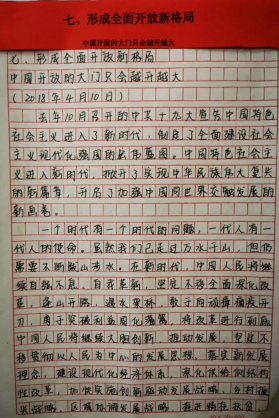 七、形成全面开放新格局
中国开放的大门只会越开越大
七、形成全面开放新格局
中国开放的大门只会越开越大
(2018年4月10日)
去年10月召开的中共十九大宣告中国特色
社会主义进入了新时代,制定了全面建设社会
主义现代化强国的宏伟蓝图。中国特色社会主
义进入新时代,掀开了实现中华民族伟大复兴
的新篇章,开启了加强中国同世界交融发展的
新画卷。
一个时代有一个时代的问题,一代人有一
代人的使命。虽然我们已走过万水千山,但仍
需要不断跋山涉水。在新时代,中国人民将继
续自强不息、自我革新,坚定不移全面深化改
革,逢山开路,遇水架桥,敢于向顽瘴痼疾开
刀,勇于突破利益固化藩篱,将改革进行到底
中国人民将继续大胆创新、推动发展,坚定不
移贯彻以人民为中心的发展思想,落实新发展
理念,建设现代化经济体系,深化供给侧结构
性改革,加快实施创新驱动发展战略、乡村振
兴战略、区域协调发展战略,推进精准扶贫